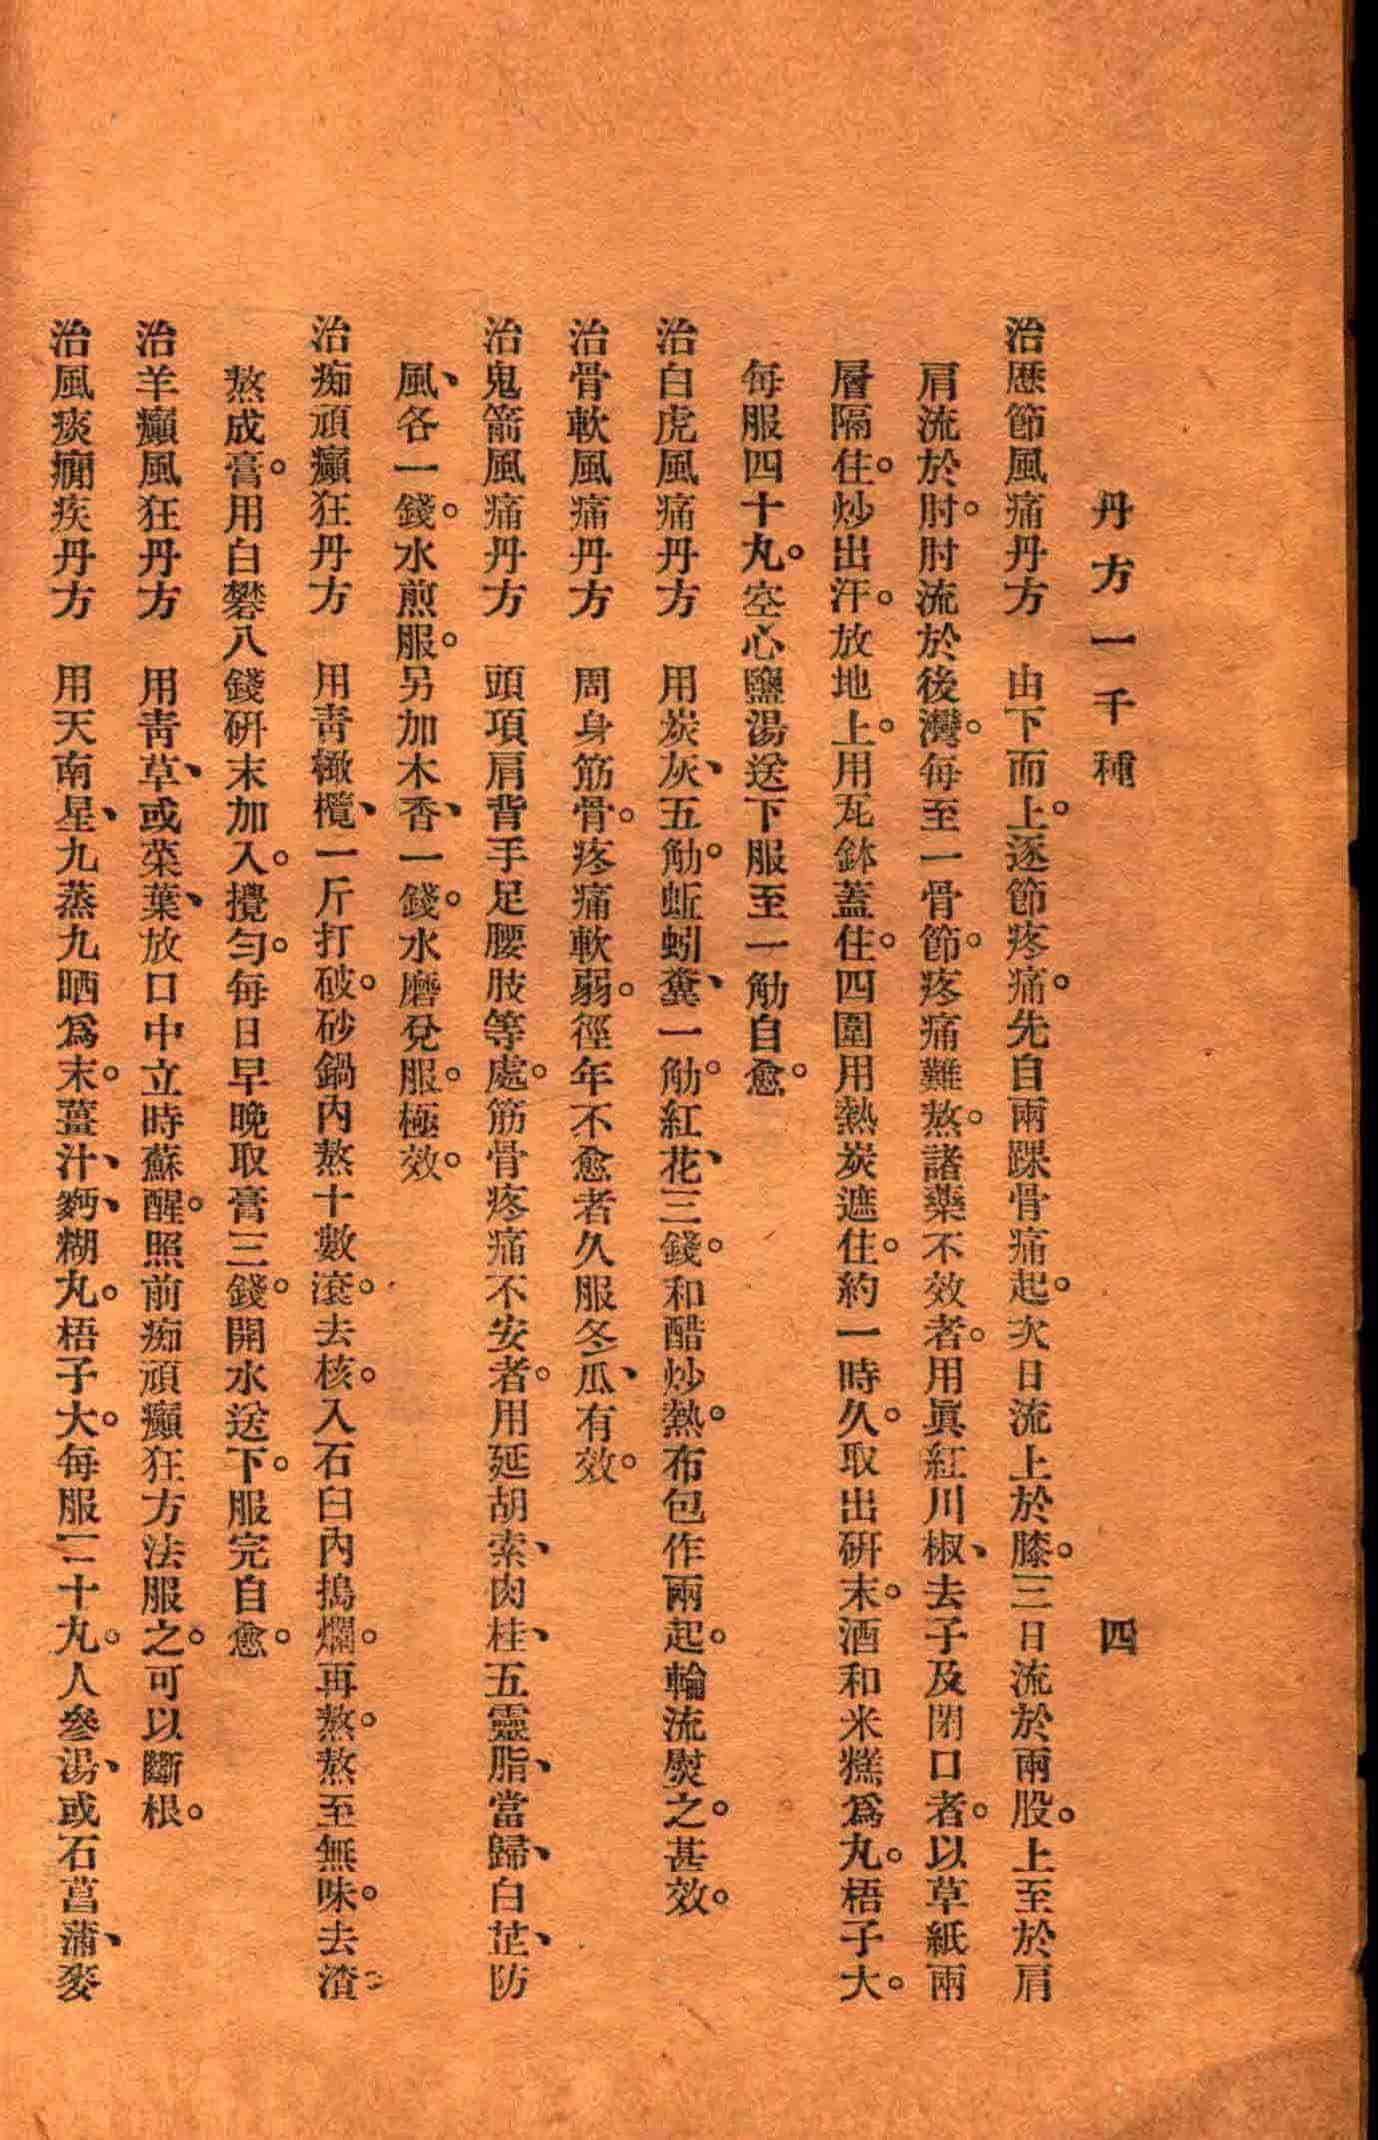 丹方一千種
四
治歷節風痛丹方　由下而上。逐節疼痛。先自兩踝骨痛起。次日流上於膝。三日流於兩股。上至於肩
肩流於肘。肘流於後灣。每至一骨節。疼痛難熬。諸藥不效者。用眞紅川椒、去子及閉口者。以草紙兩
層隔住。炒出汗。放地上。用瓦鉢蓋住。四圍用熱炭遮住。約一時久。取出硏末。酒和米糕爲丸。梧子大。
每服四十丸。空心鹽湯送下服至一觔自愈。
治白虎風痛丹方　用炭灰、五觔。蚯蚓糞、一觔。紅花、三錢。和醋炒熱。布包作兩起。輪流熨之。甚效。
治骨軟風痛丹方　周身筋骨。疼痛軟弱。徑年不愈者久服冬瓜、有效。
治鬼箭風痛丹方　頭項肩背手足腰肢等處。筋骨疼痛不安者。用延胡索、肉桂、五靈脂、當歸、白芷、防
風、各一錢。水煎服。另加木香、一錢。水磨兌服。極效。
治痴頑癲狂丹方　用靑橄欖、一斤打破。砂鍋內熬十數滾。去核。入石臼內搗爛。再熬。熬至無味。去渣。
熬成膏。用白礬八錢硏末加入。攪勻。每日早晚取膏三錢。開水送下。服完自愈。
治羊癲風狂丹方　用靑草、或菜葉、放口中立時蘇醒。照前痴頑癲狂方法服之。可以斷根。
治風痰癇疾丹方　用天南星、九蒸九晒爲末。薑汁、麪、糊丸。梧子大。每服二十丸。人參湯、或石菖蒲、麥